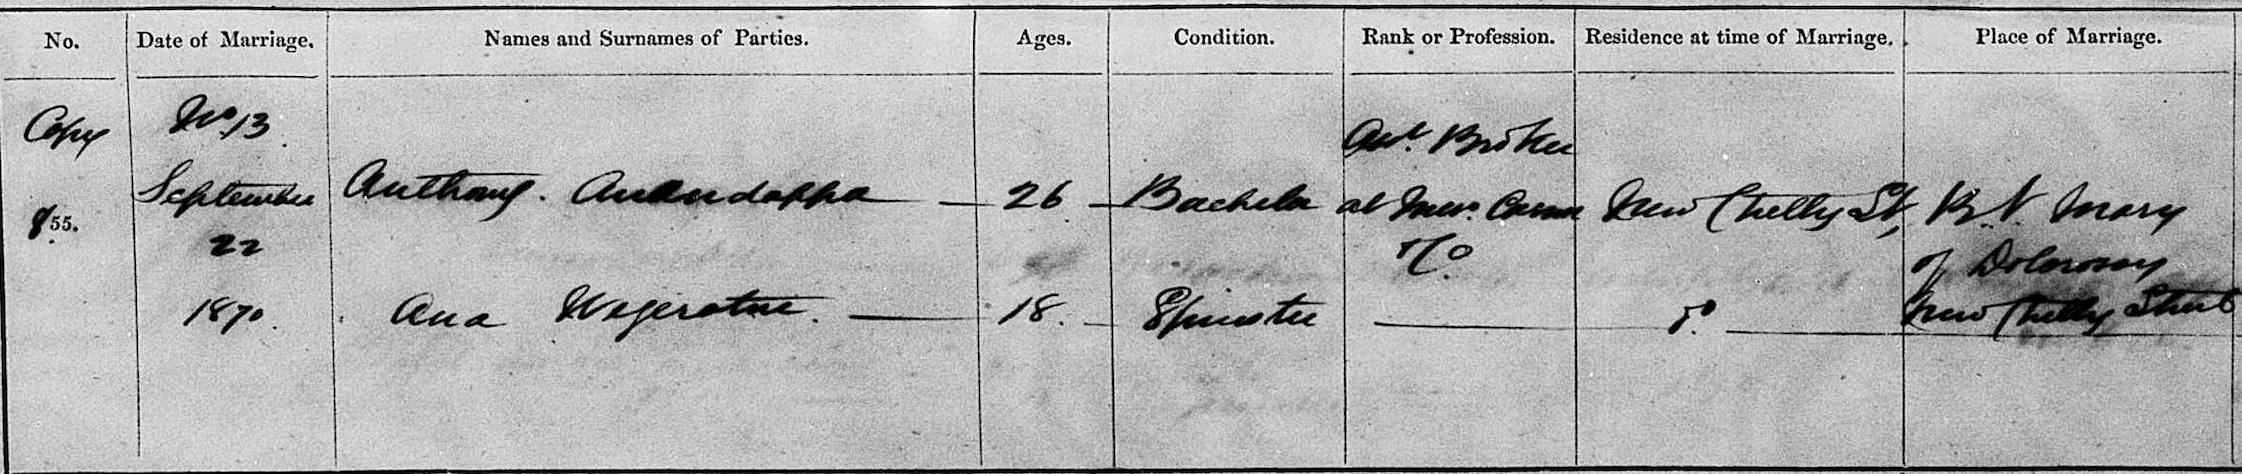 No. Date of Marriage. Names and Surnames of Parties. Ages. Condition. Rank or Profession. Residence at time of Marriage. Place of Marriage.
Copy No. 13
Broker
September Anthony. Anandappa 26 Bachelor at Messrs. New Chetty St, B. V. Mary
855.
22 & Co. of Dolorosa
1870. Ana Wijeratne. 18. Spinster Do. New Chetty Street